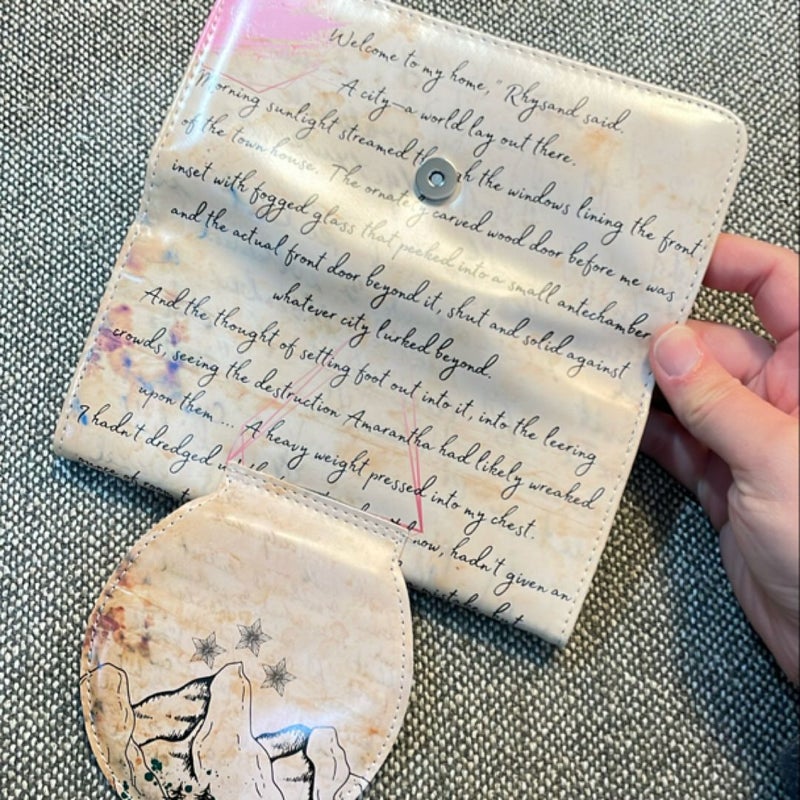 Welcome to my home," Rhysand said.
A city—a world lay out there.
Morning sunlight streamed the windows lining the front
of the town house. The ornate carved wood door before me was
inset with fogged glass that peeked into a small antechamber
and the actual front door beyond it, shut and solid against
whatever city lurked beyond.
And the thought of setting foot out into it, into the leering
crowds, seeing the destruction Amarantha had likely wreaked
upon them ... A heavy weight pressed into my chest.
I hadn't dredged
now, hadn't given an